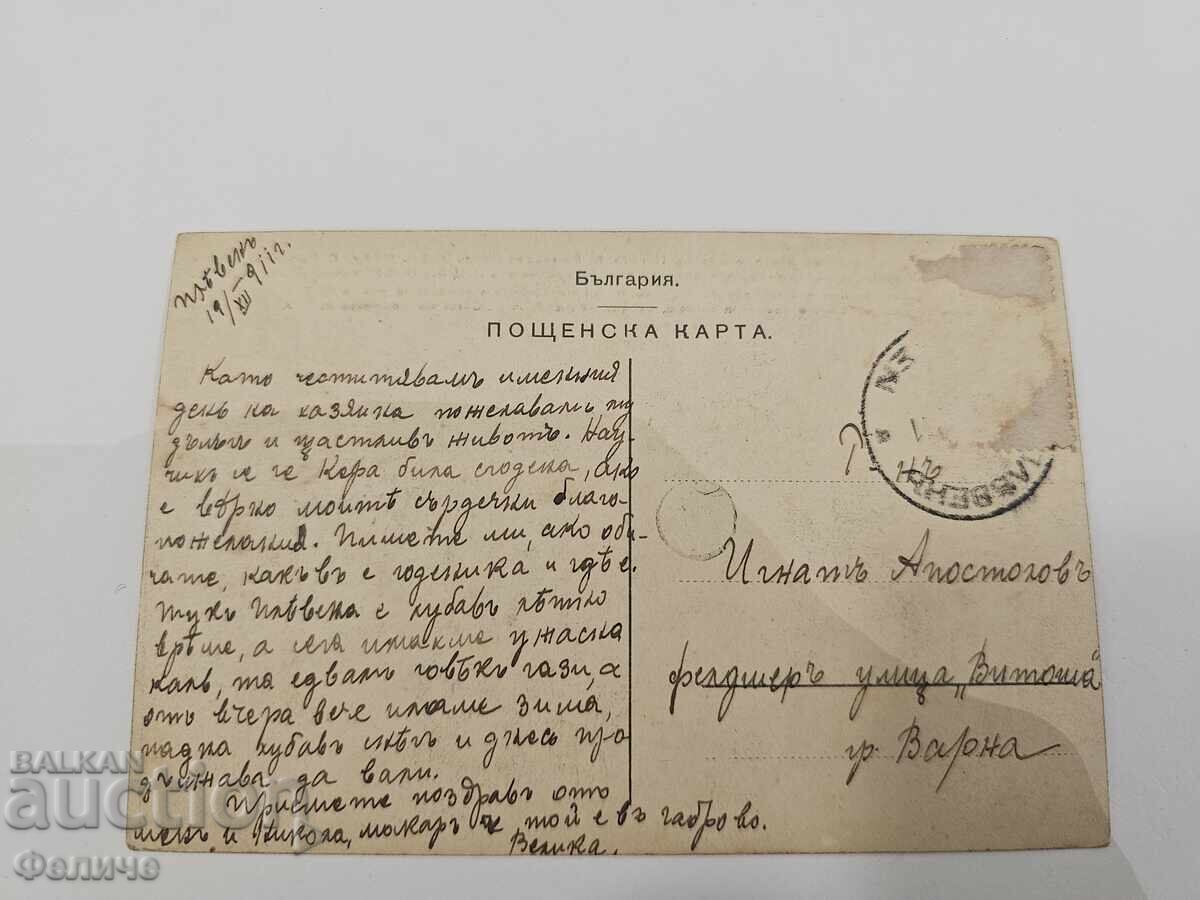 Плѣвенъ
19/XII 911 г.
България.
ПОЩЕНСКА КАРТА.
Като честитявамъ именния
день на хазяина пожелавамъ му
дълъгъ и щастливъ животъ. Нау-
чихъ се че Кера била сгодена, ако
е вѣрно моитѣ сърдечни благо-
пожелания. Пишете ми, ако оби-
чате, какъвъ е годеника и гдѣ е.
Тукъ Плѣвена е хубавъ лѣтно
врѣме, а сега имахме ужасна
каль, та едвамъ човѣкъ гази, а
отъ вчера вече имаме зима,
падна хубавъ снѣгъ и днесь про-
дължава да вали.
Приемете поздравъ отъ
менъ и Никола, макаръ че той е въ Габрово.
Велика.
Г-нъ
Игнатъ Апостоловъ
фелдшеръ улица „Витоша"
гр. Варна
BALKAN
auction
Феличе